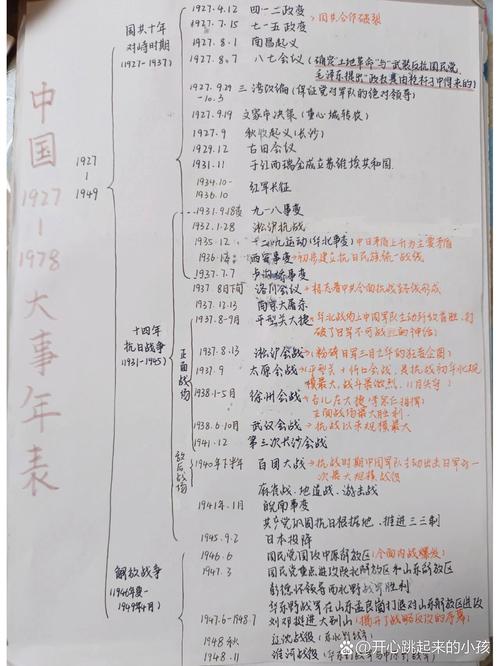 中国1927-1978大事年表
1927-1949
国共十年对峙时期(1927-1937)
1927.4.12 四一二政变
1927.7.15 七一五政变 国共合作破裂
1927.8.1 南昌起义
1927.8.7 八七会议(确定"土地革命"与"武装反抗国民党
毛泽东提出"政权是由枪杆子中得来的")
1927.9.29-10.3 三湾改编(保证党对军队的绝对领导)
1927.9.19 文家市决策(重心城转农)
1927.9 秋收起义(长沙)
1929.12 古田会议
1931.11 于江西瑞金成立苏维埃共和国
1934.10-1936.10 红军长征
十四年抗日战争(1931-1945)
1931.9.18夜 九一八事变
1932.1.28 淞沪抗战
1935.12 一二九运动(华北事变)中日矛盾上升为主要矛盾
1936.12 西安事变→初步建立抗日民族统一战线
1937.7.7 卢沟桥事变
1937.8月下旬 洛川会议→标志着中共全面抗战路线形成
1937.12.13 南京大屠杀
正面战场
1937.8-9月 平型关大捷→华北战场上中国军队主动歼敌首胜,打
破了日军不可战胜的神话
1937.8.13 淞沪会战→粉碎日军三月亡华的狂妄企图
1937.9 太原会战→平型关+忻口会战,是抗战初华北规
模最大,战斗最激烈,11月失守
1938.1-5月 徐州会战→台儿庄大捷,李宗仁指挥
正面战场最大胜利.
1938.6-10月 武汉会战→抗战以来规模最大
1941.12 第三次长沙会战
敌后战场
1940年下半年 百团大战→抗战时期中国军队主动出击日军的一
次最大规模战役
麻雀战、地道战、游击战
1941年1月 皖南事变
共产党巩固抗日根据地、推进三三制
1945.9.2 日本投降
解放战争(1946年夏-1949年4月)
1946.6 国民党围攻中原解放区(全面内战爆发)
1947.3 国民党重点进攻陕北解放区和山东解放区
彭德怀领导西北野战军胜利
华东野战军在山东孟良崮打退对山东解放区进攻
1947.6-1948.7 刘邓挺进大别山(揭开了战略反攻的序幕)
1948秋 辽沈战役
1948.11 淮海战役
头条 @开心跳起来的小孩